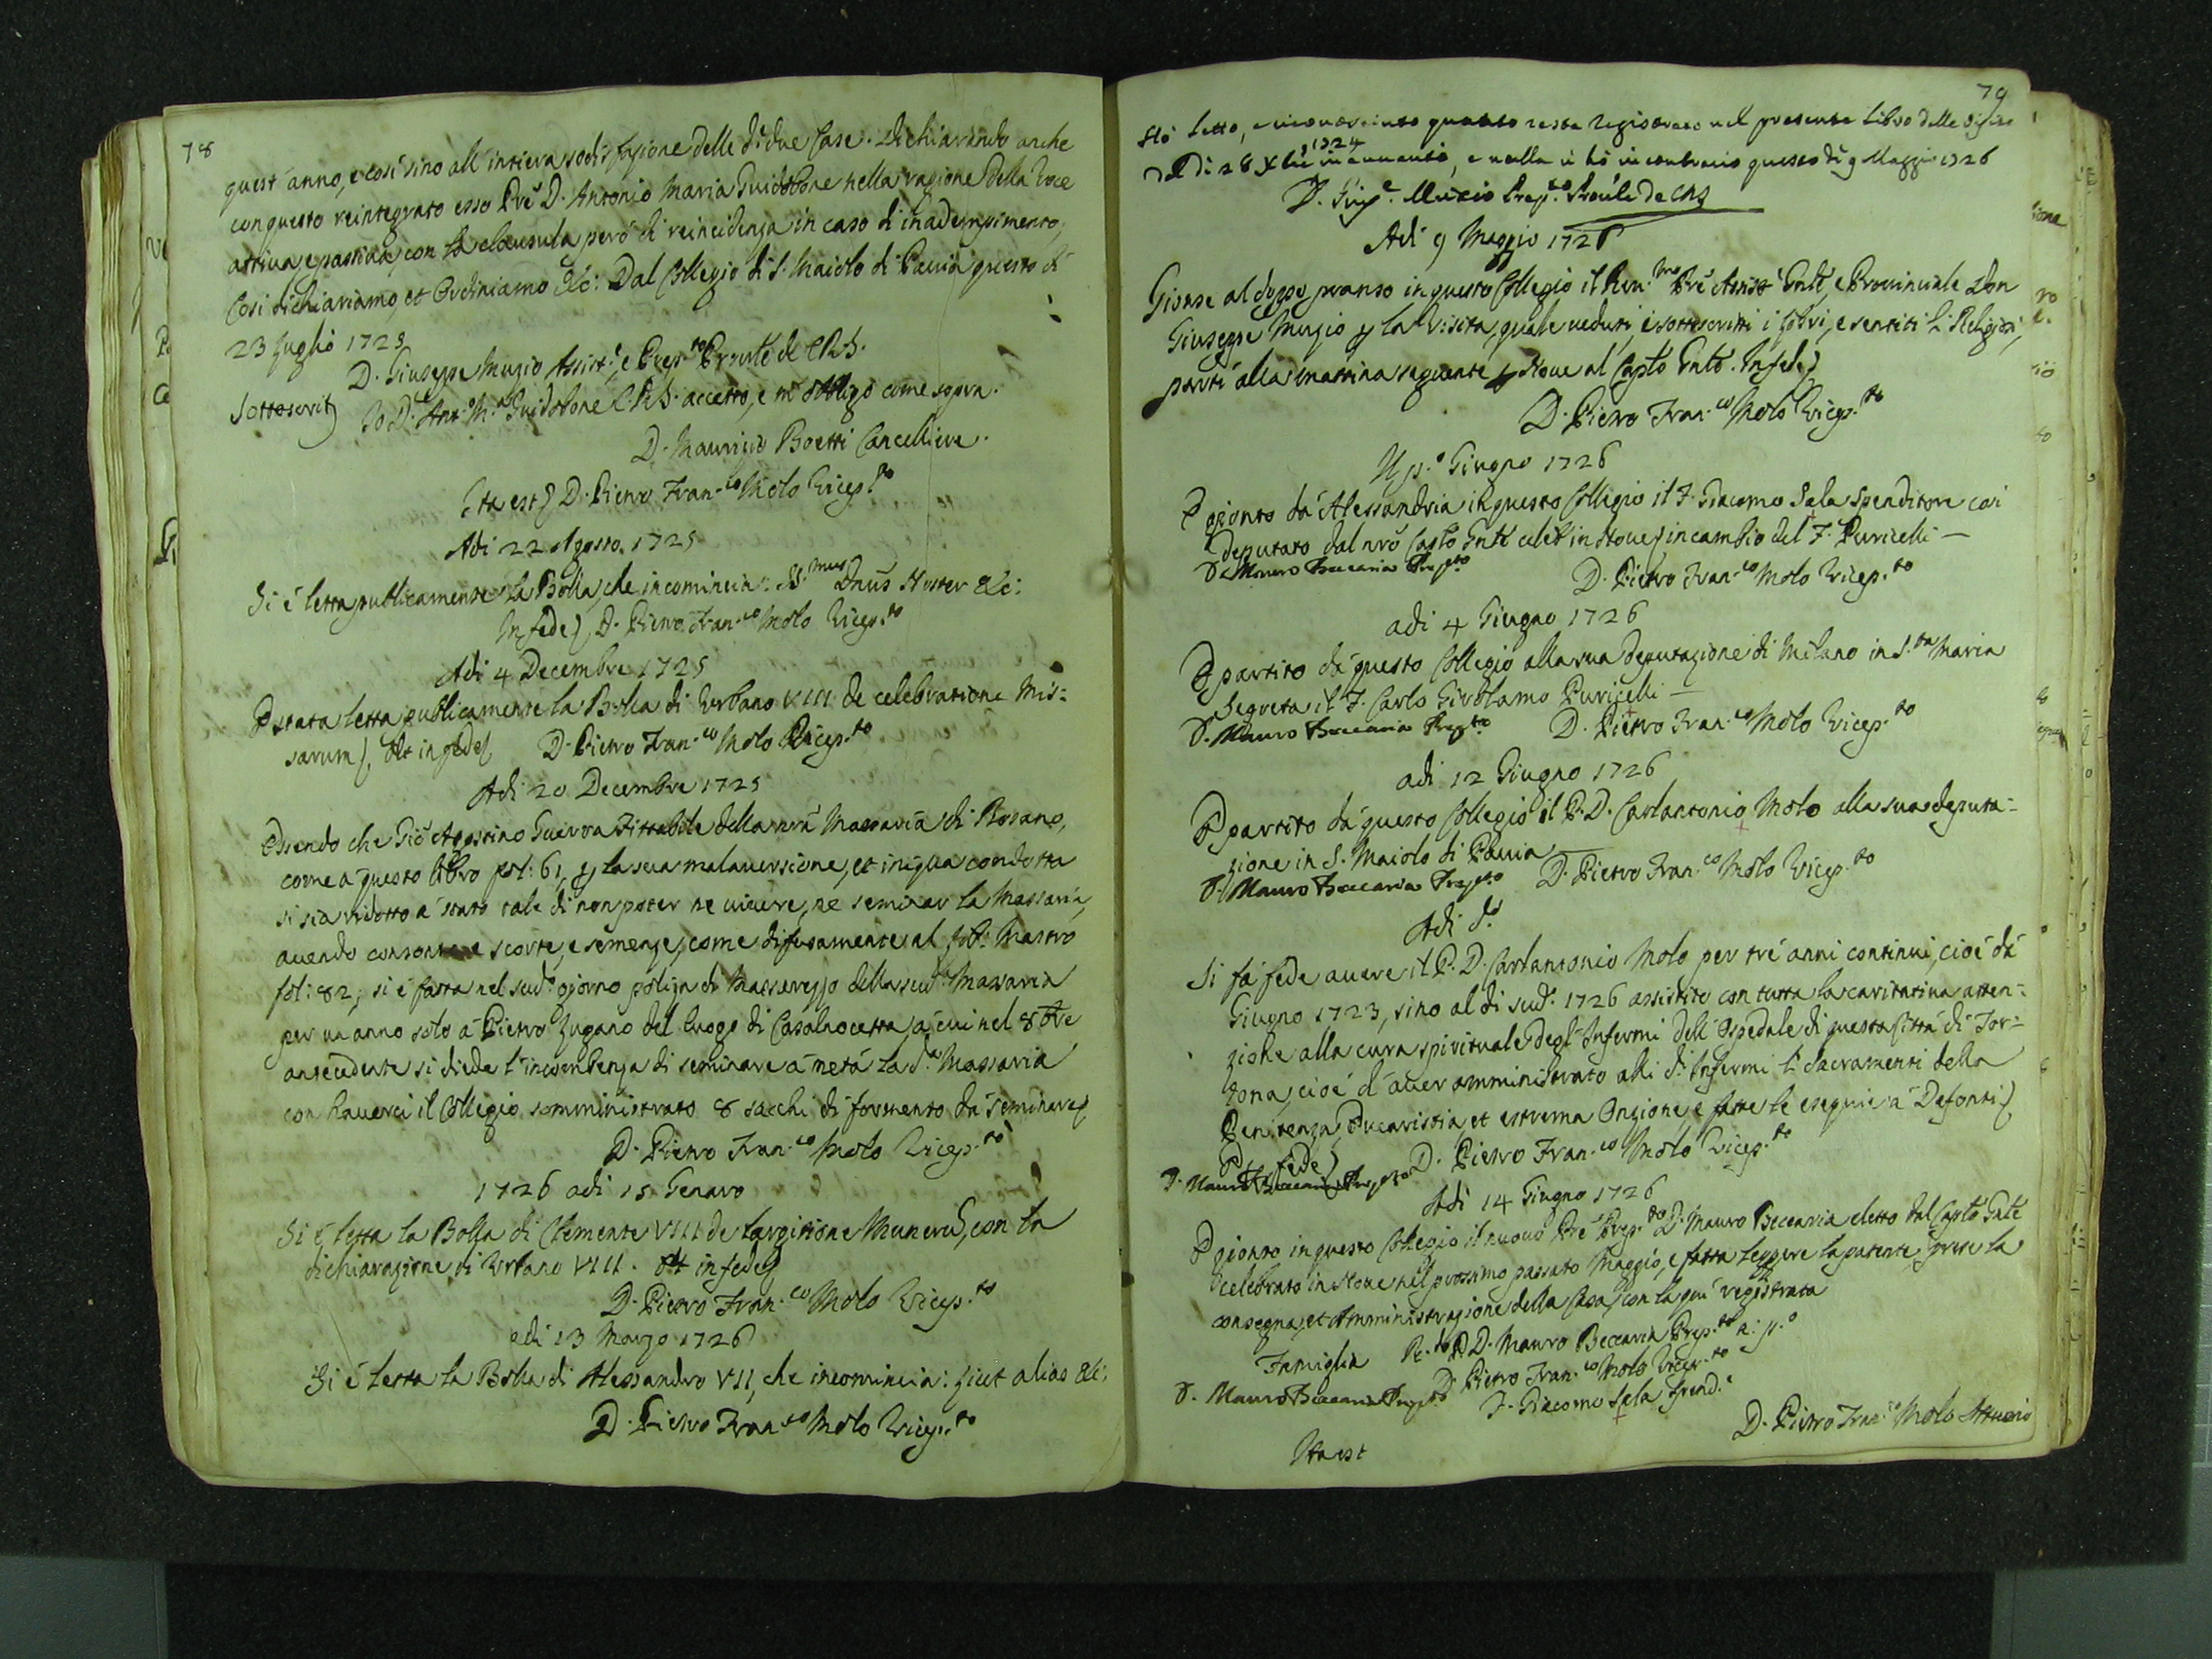 78
quest'anno, e così sino all'intiera sodisfazione delle dᵉ due Case. Dichiarando anche
con questo reintegrato esso Prē D. Antonio Maria Guidobone nella ragione della Voce
attiva, e passiva, con la clausula però di reincidenza in caso di inadempimento,
Così dichiariamo, et Ordiniamo &c: Dal Collegio di S. Maiolo di Pavia questo dì
23 Luglio 1725
D. Giuseppe Muzio Assist.ᵉ, e Prep.ᵗᵒ Prov̄le de CRS.
Sottoscritt
Io D. Ant.º M.ª Guidobone C.R.S. accetto, e m'obbligo come sopra.
D. Maurizio Boetti Cancelliere.
Ita est D. Pietro Fran.ᶜᵒ Molo Vicep.ᵗᵒ
Adi 22 Agosto 1725
Si è letta publicamente la Bolla, che incomincia: SS.ᵐᵘˢ Dnūs Noster &c:
In fede, D. Pietro Fran.ᶜᵒ Molo Vicep.ᵗᵒ
Adi 4 Decembre 1725
È stata letta publicamente la Bolla di Urbano VIII de celebratione Mis=
sarum, et in fede D. Pietro Fran.ᶜᵒ Molo Vicep.ᵗᵒ
Adi 20 Decembre 1725
Essendo che Gio Agostino Guerra Fittabile della nrā Massaria di Rosano,
come a questo libro fol: 61, p la sua malaversione, et iniqua condotta
si sia ridotto a stato tale di non poter ne vivere, ne seminar la Massaria,
avendo consonte e scorte, e semenze, come difusamente al lib: Mastro
fol: 82; si è fatta nel sudº giorno poliza di Massarezzo della sudª Massaria
per un anno solo a Pietro Zugano del luogo di Casalnocetta, a cui nel 8bre
antecedente si diede l'incombenza di seminare a metà la dª Massaria
con haverci il Collegio somministrato 8 sacchi di formento da seminare
D. Pietro Fran.ᶜᵒ Molo Vicep.ᵗᵒ
1726 adi 15 Genaro
Si è letta la Bolla di Clemente VIII de largitione Munerū, con la
dichiarazione di Urbano VIII. et in fede
D. Pietro Fran.ᶜᵒ Molo Vicep.ᵗᵒ
adi 13 Marzo 1726
Si è letta la Bolla di Alessandro VII, che incomincia: Sicut alias &c:
D. Pietro Fran.ᶜᵒ Molo Vicep.ᵗᵒ
79
Hò letto, e riconosciuto quanto resta registrato nel presente libro delle visite
dal dì 28 Xbre 1724 in avvanti, e nulla vi hò in contrario questo dì 9 Maggio 1726
D. Giuᵉ Muzio Prep.ᵗᵒ Prov̄le de CRS
Adi 9 Maggio 1726
Gionse al doppo pranso in questo Collegio il Rev.ᵐᵒ Prē Assistᵉ Gnlē, e Provinciale Don
Giuseppe Muzio p la Visita, quale veduti, e sottoscritti i Libri, e sentiti li Religiosi,
partì alla mattina seguente p Nove al Caplō Gnlē. In fede
D. Pietro Fran.ᶜᵒ Molo Vicep.ᵗᵒ
Il p.º Giugno 1726
È gionto da Alessandria in questo Collegio il F. Giacomo Sala Spenditore coi
deputato dal nrō Caplō Gnlē celebº in Nove in cambio del F. Puricelli —
D. Mauro Beccaria Prepᵗᵒ
D. Pietro Fran.ᶜᵒ Molo Vicep.ᵗᵒ
adi 4 Giugno 1726
È partito da questo Collegio alla sua deputazione di Milano in S.ᵗᵃ Maria
Segreta il F. Carlo Girolamo Puricelli —
D. Mauro Beccaria Prepᵗᵒ
D. Pietro Fran.ᶜᵒ Molo Vicep.ᵗᵒ
adi 12 Giugno 1726
È partito da questo Collegio il P. D. Carlantonio Molo alla sua deputa=
zione in S. Maiolo di Pavia —
D. Mauro Beccaria Prepᵗᵒ
D. Pietro Fran.ᶜᵒ Molo Vicep.ᵗᵒ
Adi dº
Si fà fede avere il P. D. Carlantonio Molo per trè anni continui, cioè dà
Giugno 1723, sino al dì sudº 1726 assistito con tutta la caritativa atten=
zione alla cura spirituale degl'Infermi dell'Ospedale di questa Città di Tor=
tona, cioè d'aver amministrato alli di Infermi li Sacramenti della
Penitenza, Eucaristia, et estrema Onzione, e fatte le esequie a' Defonti
fede D. Pietro Fran.ᶜᵒ Molo Vicep.ᵗᵒ
D. Mauro Beccaria Prepᵗᵒ
Adi 14 Giugno 1726
È gionto in questo Collegio il nuovo Prē Prep.ᵗᵒ D. Mauro Beccaria eletto dal Caplō Gnlē
celebrato in Nove nel prossimo passato Maggio, e fatta leggere la patente, prese la
consegna, et Amministrazione della Casa, con la qui registrata
Famiglia R.ᵈᵒ P. D. Mauro Beccaria Prep.ᵗᵒ a: p.º
D. Pietro Fran.ᶜᵒ Molo Vicep.ᵗᵒ
D. Mauro Beccaria Prepᵗᵒ
F. Giacomo Sala Spend.ᵉ
D. Pietro Fran.ᶜᵒ Molo Attuario
Ita est